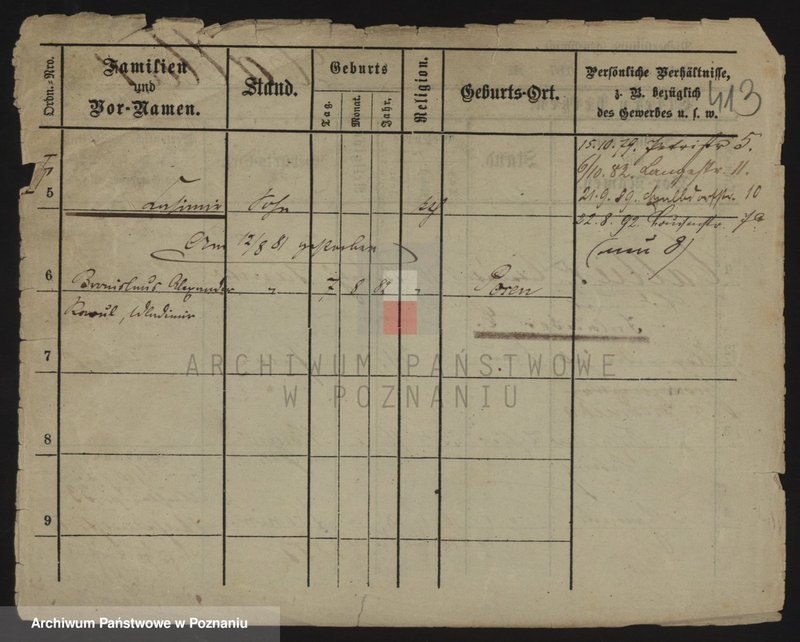 413
Ordn.-Nro.
Familien
und
Vor-Namen.
Stand.
Geburts
Tag.
Monat.
Jahr.
Religion.
Geburts-Ort.
Persönliche Verhältnisse,
z. B. bezüglich
des Gewerbes u. s. w.
15.10.79. Petristr 5.
6/10. 82. Langestr. 11.
21.9.89. 10
22.8.92. 7a
(neu 8)
5
Kasimir Sohn
Am 12/8 81 gestorben
6
Bronislaus Alexander " 7 8 82 " Posen
Raoul, Wladimir
7
8
9
ARCHIWUM PAŃSTWOWE
W POZNANIU
Archiwum Państwowe w Poznaniu